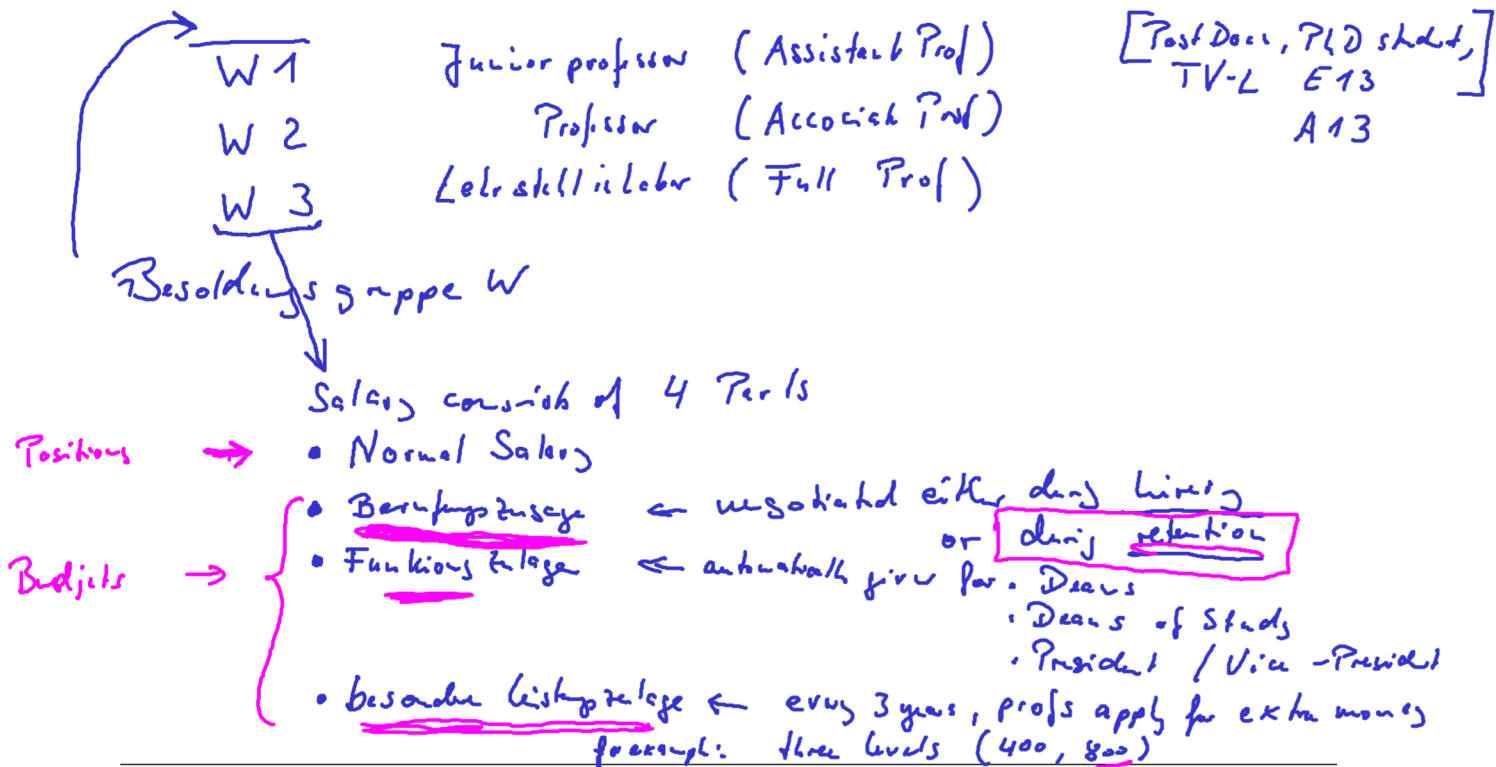 W 1 Junior professor (Assistant Prof) [Post Docs, PhD student,
TV-L E13]
W 2 Professor (Accociate Prof) A 13
W 3 Lehrstuhlinhaber (Full Prof)
Besoldungsgruppe W
Salary consists of 4 Parts
Positions → • Normal Salary
• Berufungszusage ← negotiated either during hiring
or during retention
Budjets → • Funktionszulagen ← automatically given for • Deans
• Deans of Study
• President / Vice-President
• besondere Leistungszulage ← every 3 years, profs apply for extra money
for example: three levels (400, 800)